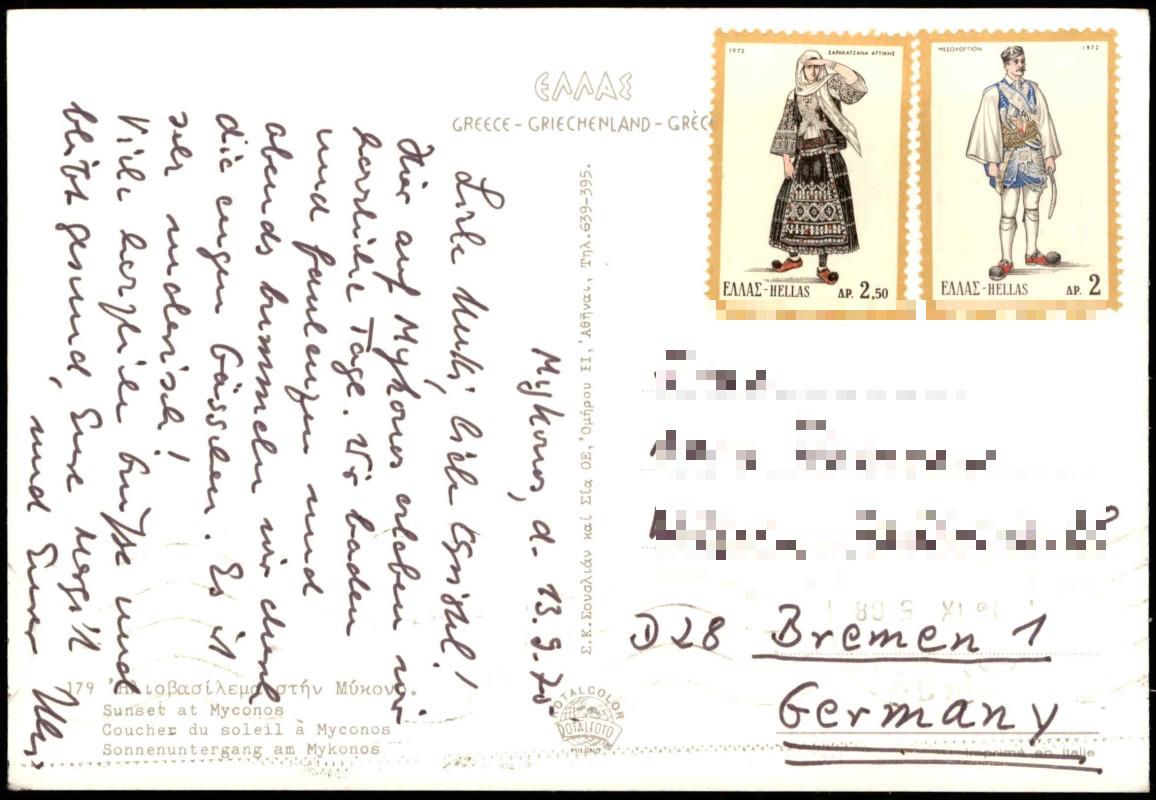 ΕΛΛΑΣ
GREECE - GRIECHENLAND - GRÈC
1972 ΣΑΡΑΚΑΤΣΑΝΑ ΑΤΤΙΚΗΣ
ΕΛΛΑΣ-HELLAS ΔΡ. 2,50
ΜΕΣΟΛΟΓΓΙΟΝ 1972
ΕΛΛΑΣ-HELLAS ΔΡ. 2
Mykonos, d. 13.9.
Liebe Mutti, liebe
Hier auf Mykonos erleben wir
herrliche Tage. Wir baden
und faulenzen und
abends bummeln wir durch
die engen Gässchen. Es ist
sehr malerisch!
Viele herzliche Grüße und
bleibt gesund, Eure Margitt
und Euer
Σ.Κ.Σουαλιάν καί Σία ΟΕ, Ὁμήρου ΙΙ, Ἀθῆναι, Τηλ.639-395.
D 28 Bremen 1
Germany
179 Ἡλιοβασίλεμα στήν Μύκονο.
Sunset at Myconos
Coucher du soleil à Myconos
Sonnenuntergang am Mykonos
ROTALCOLOR
ROTALFOTO
MILANO